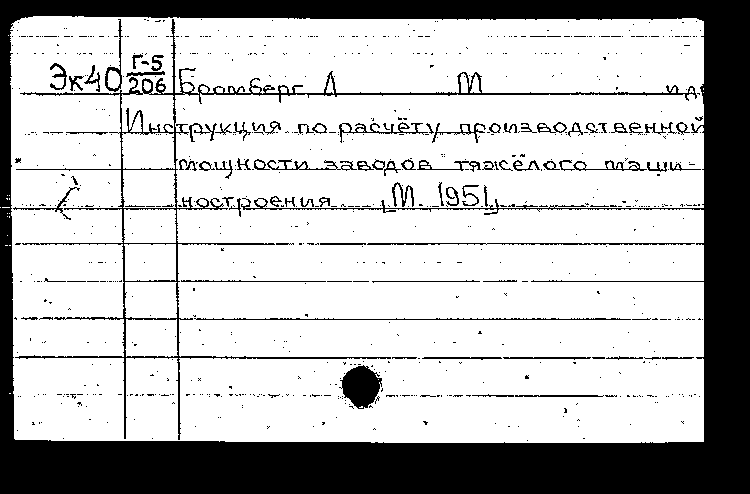 Эк40 Г-5 Бромберг Л М и др
206
Инструкция по расчёту производственной
мощности заводов тяжёлого маши-
ностроения [М. 1951]